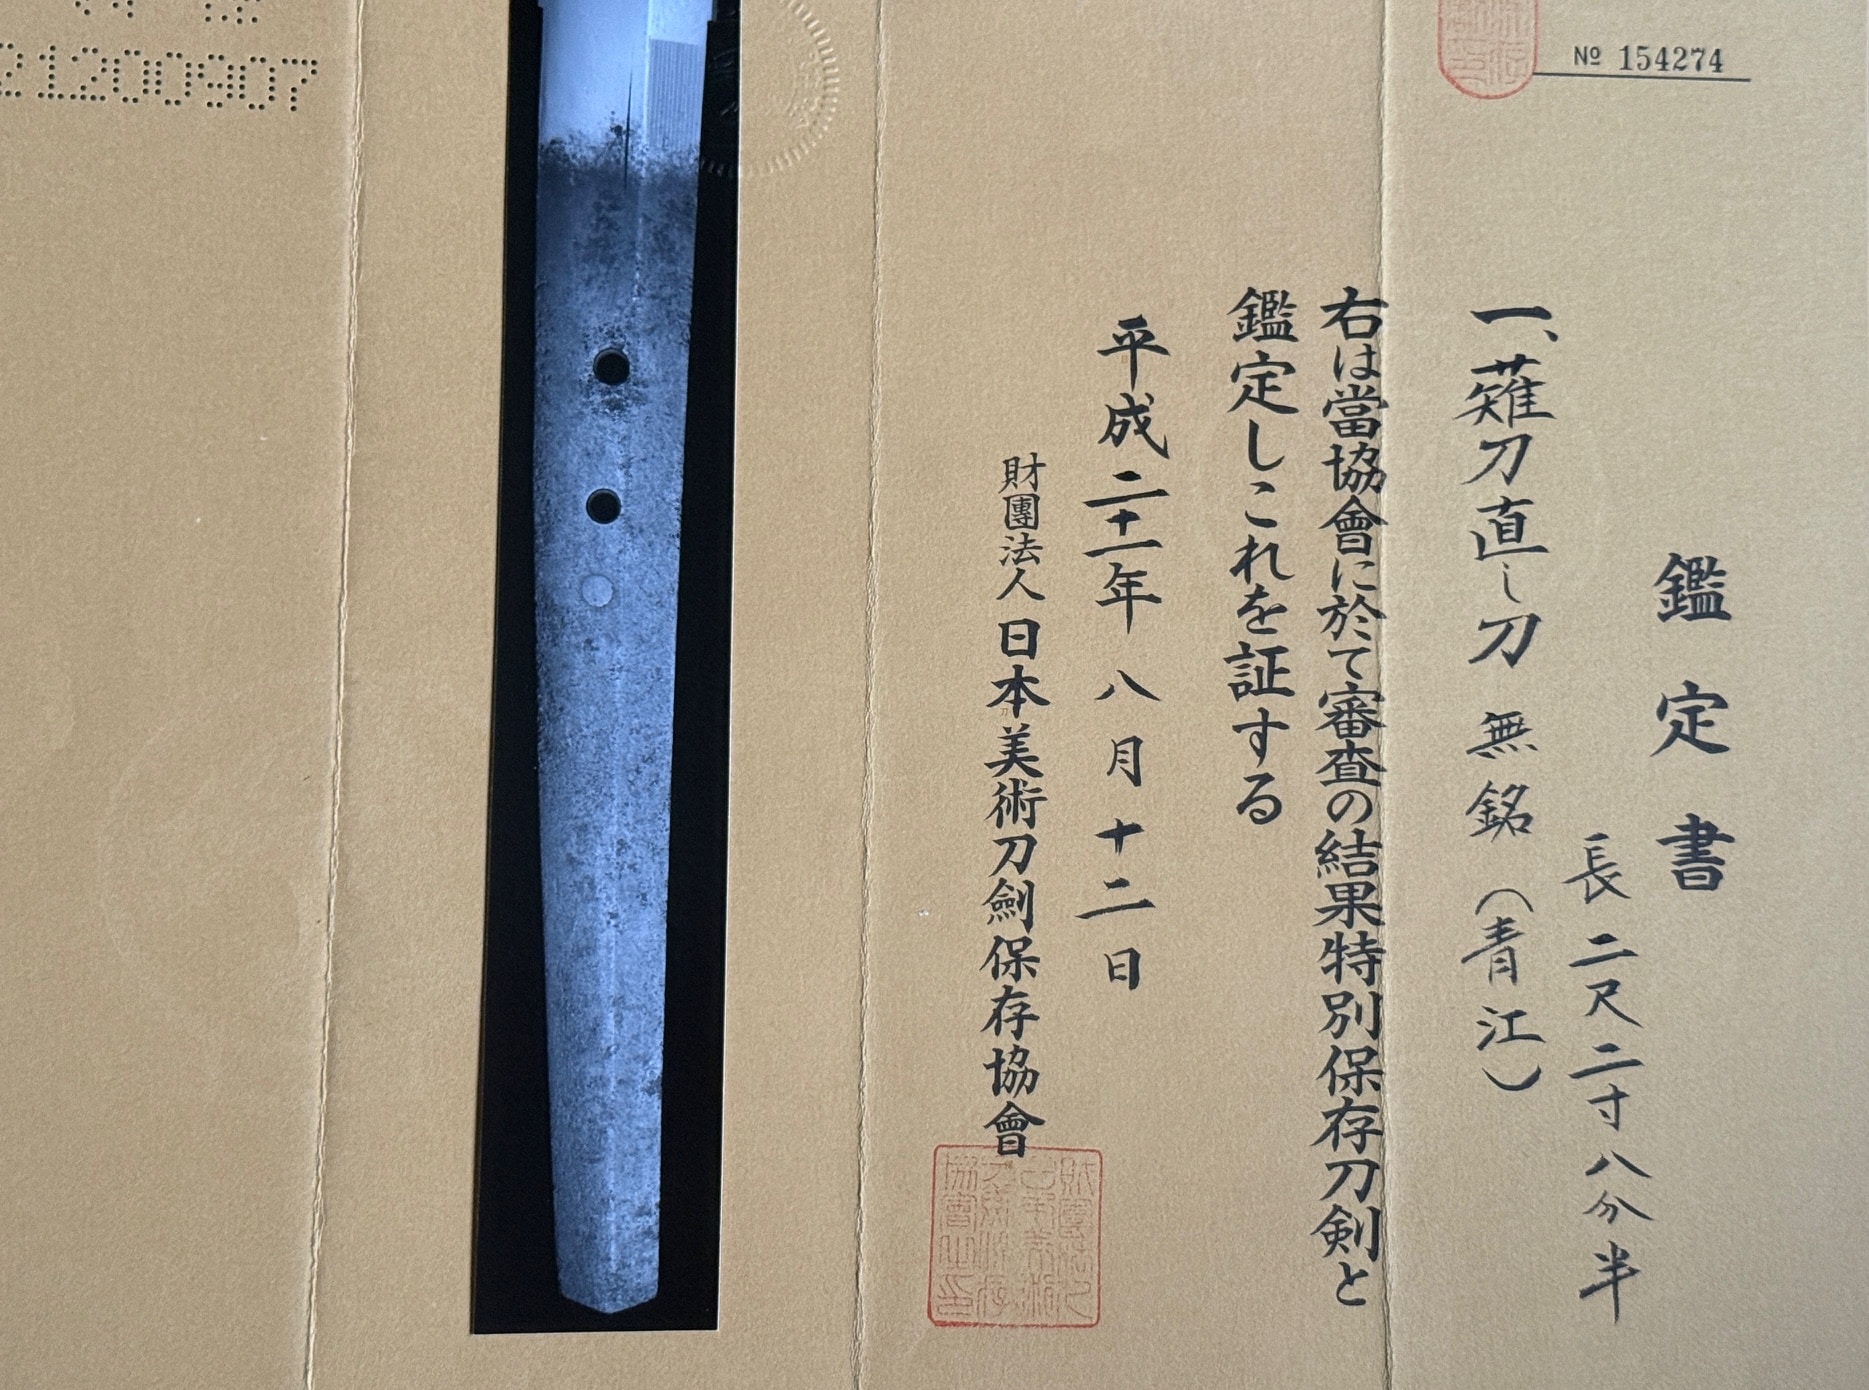 № 154274
鑑定書
長二尺二寸八分半
一、薙刀直し刀 無銘(青江)
右は當協會に於て審査の結果特別保存刀剣と
鑑定しこれを証する
平成二十一年八月十二日
財團法人 日本美術刀劍保存協會
21200907